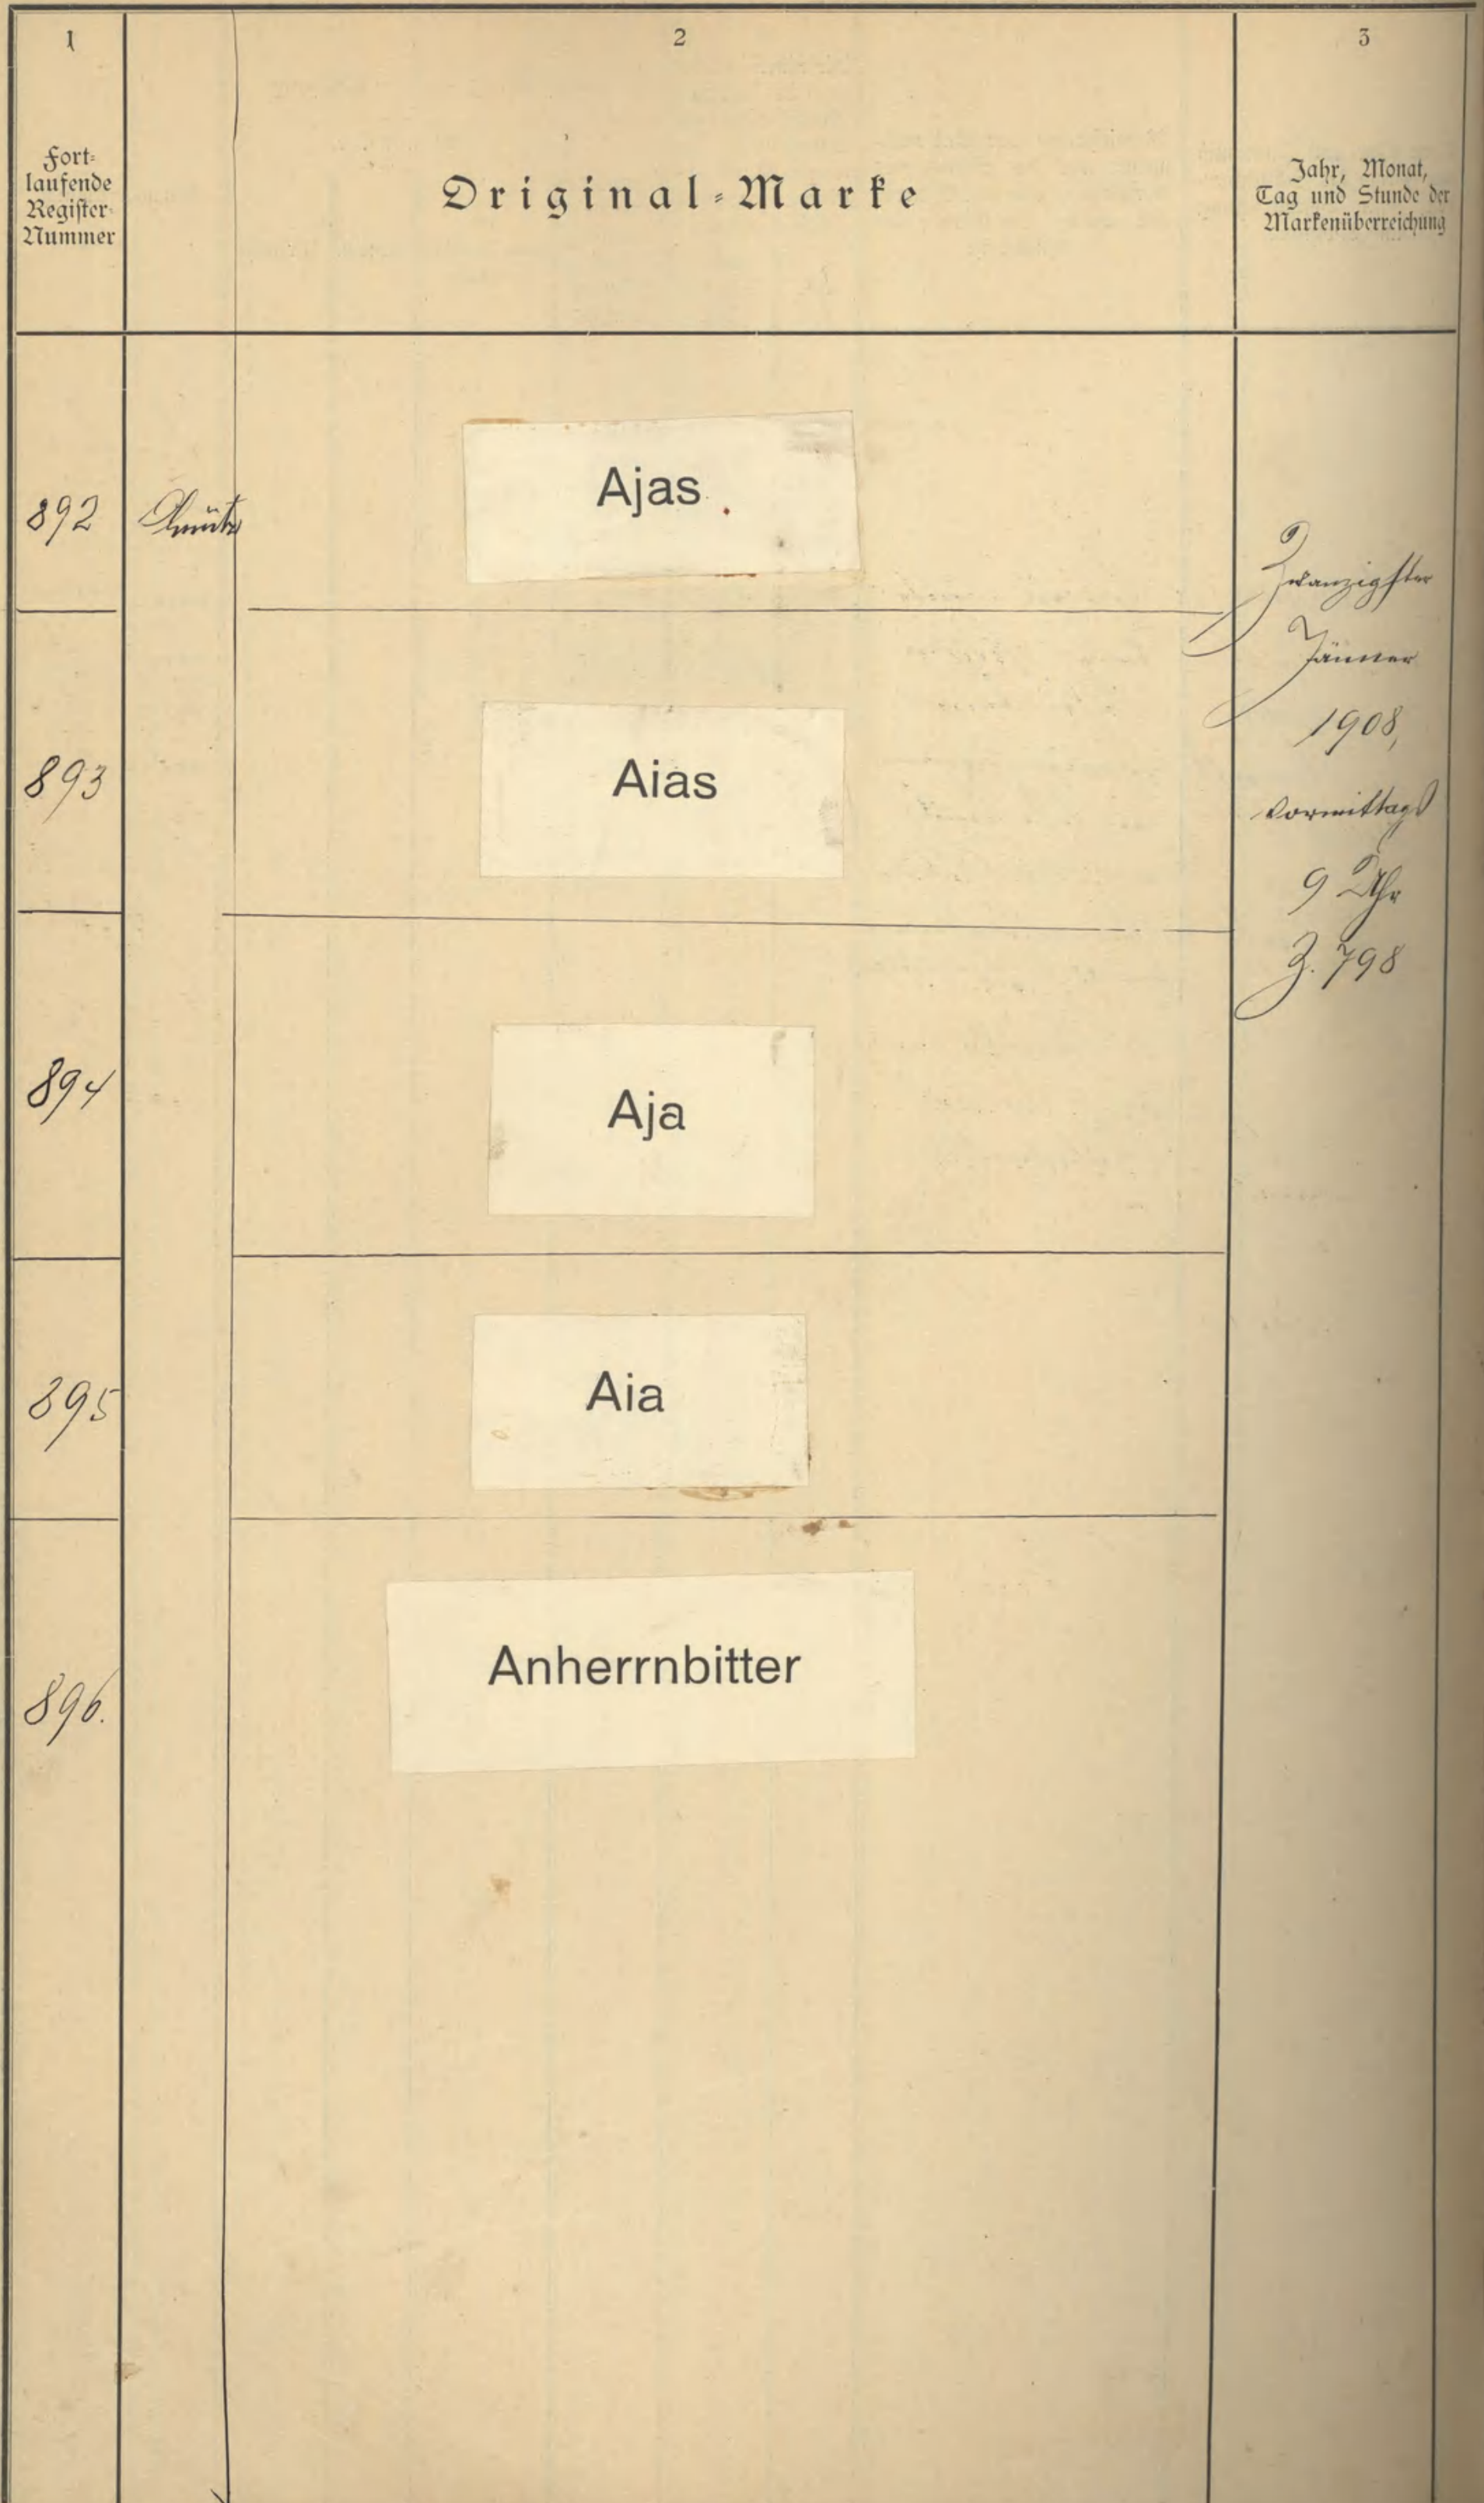 1
2
3
Fort-
laufende
Register-
Nummer
Original-Marke
Jahr, Monat,
Tag und Stunde der
Markenüberreichung
892
Olmütz
Ajas
Zwanzigster
Jänner
1908,
Vormittags
9 Uhr
Z. 798
893
Aias
894
Aja
895
Aia
896.
Anherrnbitter